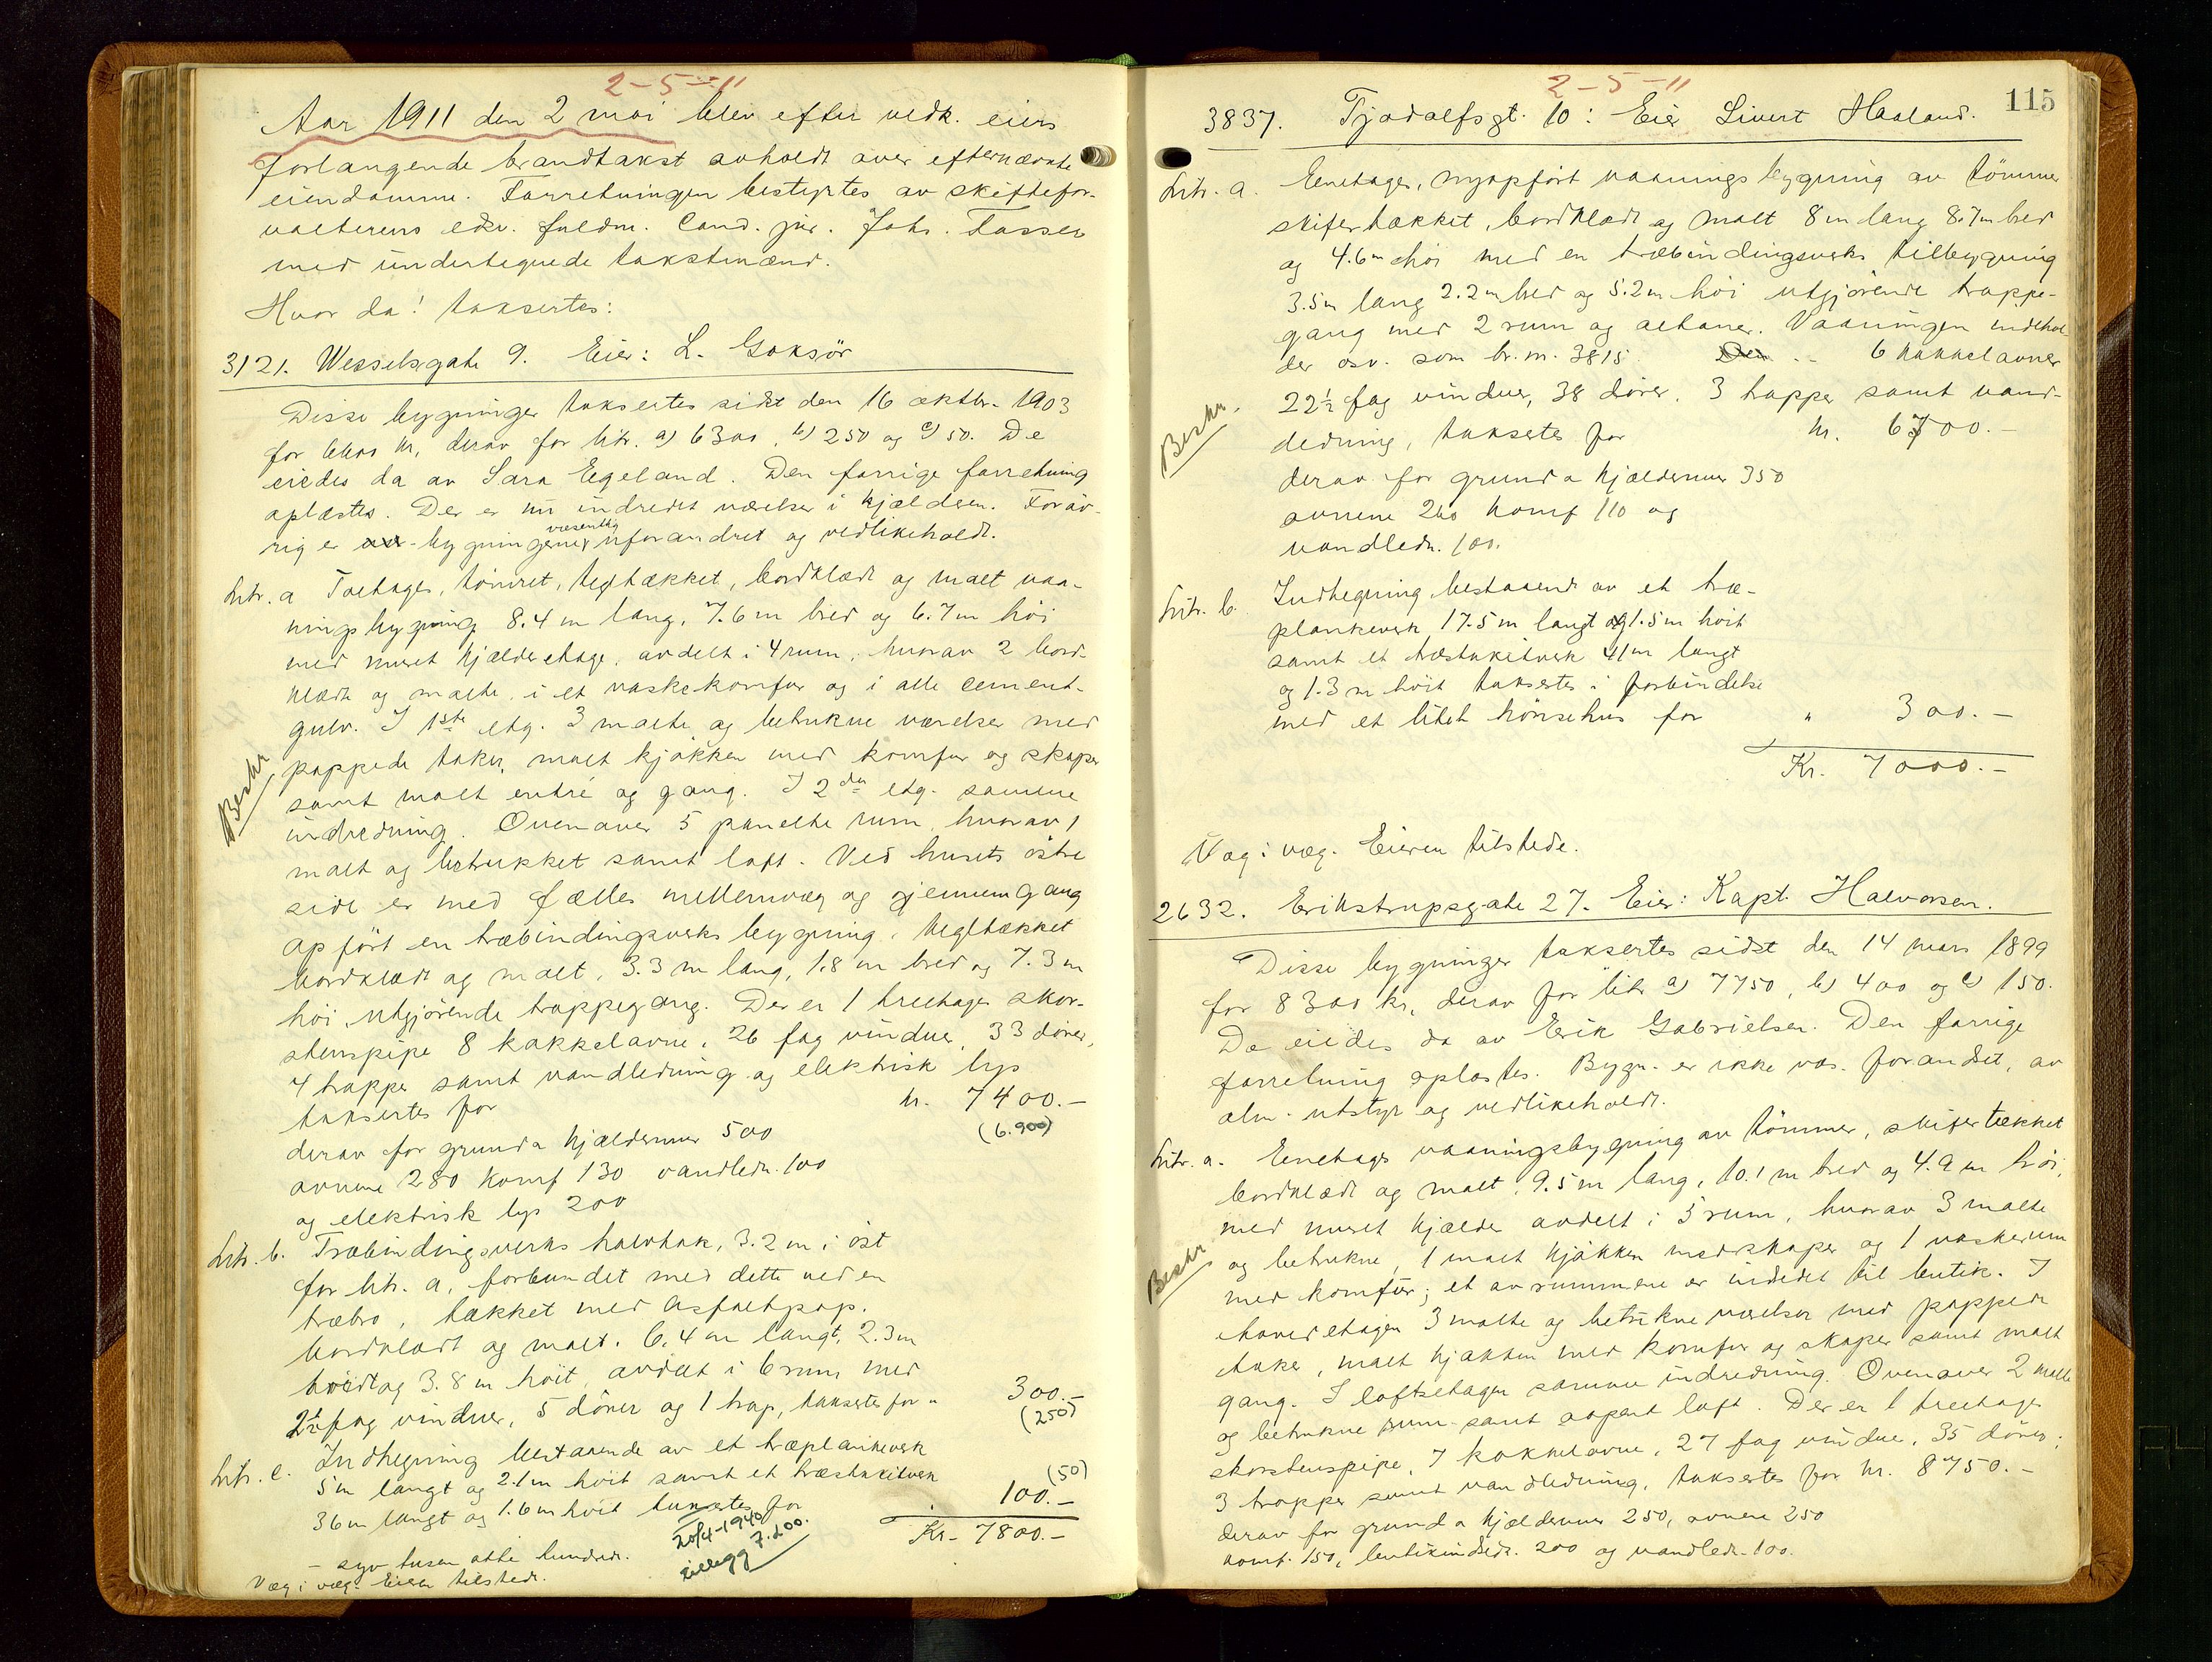 2-5-11
Aar 1911 den 2 mai blev efter vedk. eiers
forlangende brandtakst avholdt over efternævnte
eiendomme. Forretningen bestyrtes av skiftefor-
valterens edsv. fuldm. Cand. jur. Johs. Tasser
med undertegnede takstmænd.
Hvor da! taksertes:
3121. Wesselsgate 9. Eier: L. Goksör
Disse bygninger taksertes sidst den 16 oktbr. 1903
for 6600 kr, derav for litr. a) 6300, b) 250 og c) 50. De
eiedes da av Sara Egeland. Den forrige forretning
oplæstes. Der er nu indredet værelser i kjælderen. Forøv-
rig er bygningene væsentlig uforandret og vedlikeholdt.
Litr. a Toetages, tömret, teqltækket, bordklædt og malt vaa-
ningsbygning 8.4 m lang, 7.6 m bred og 6.7 m høi
med muret kjælderetage, avdelt i 4 rum, hvorav 2 bord-
klædte og malte, i et vaskekomfur og i alle cement-
gulv. I 1ste etg. 3 malte og betrukne værelser med
pappede taker, malt kjøkken med komfur og skaper
samt malt entré og gang. I 2den etg. samme
indredning. Ovenover 5 panelte rum, hvorav 1
malt og betrukket samt loft. Ved husets østre
side er med fælles mellemvæg og gjennemgang
opført en træbindingsverks bygning, tegltækket
bordklædt og malt, 3.3 m lang, 1.8 m bred og 7.3 m
høi, utgjørende trappegang. Der er 1 treetages skor-
stenspipe 8 kakkelovne, 26 fag vinduer, 33 dører,
4 trapper samt vandledning og elektrisk lys
taksertes for kr. 7400.-
(6.900)
derav for grund a kjældermur 500
ovnene 280 komf 130 vandledn. 100
og elektrisk lys 200
Beskr
Litr. b. Træbindingsverks halvtak, 3.2 m i øst
for litr. a, forbundet med dette ved en
træbro, tækket med asfaltpap.
bordklædt og malt. 6.4 m langt, 2.3 m
bredt og 3.8 m høit, avdelt i 6 rum med
2½ fag vinduer, 5 dører og 1 trap, taksertes for " 300.-
(250)
Litr. c. Indhegning bestaaende av et træplankeverk
5 m langt og 2.1 m høit samt et træstakitverk (50)
36 m langt og 1.6 m høit taksertes for 100.-
Kr. 7800.-
- syv tusen otte hundrede.
Væg i væg. Eieren tilstede.
20/4-1940
Tillegg 7.200.
2-5-11
115
3837. Tjodolfsgt. 10: Eier Sivert Haaland.
Litr. a. Eenetages, nyopført vaaningsbygning av tömmer
skifertækket, bordklædt og malt 8 m lang 8.7 m bred
og 4.6 m høi med en træbindingsverks tilbygning
3.5 m lang 2.2 m bred og 5.2 m høi utgjörende trappe-
gang med 2 rum og altaner. Vaaningen indehol-
der osv. som br. nr. 3815. 6 kakkelovner
22½ fag vinduer, 38 dører, 3 trapper samt vand-
ledning, taksertes for kr. 6700.-
derav for grund a kjældermur 350
ovnene 260 komf 110 og
vandledn. 100.
Beskr.
Litr. b. Indhegning, bestaaende av et træ-
plankeverk 17.5 m langt og 1.5 m høit
samt et træstakitverk 41 m langt
og 1.3 m høit taksertes i forbindelse
med et litet hönsehus for " 300.-
Kr. 7000.-
Væg i væg. Eieren tilstede.
2632. Erikstrupsgate 27. Eier: Kapt. Halvorsen.
Disse bygninger taksertes sidst den 14 mars 1899
for 8300 kr, derav for litr a) 7750, b) 400 og c) 150.
De eiedes da av Erik Gabrielsen. Den forrige
forretning oplæstes. Bygn. er ikke væs. forandret, av
alm. utstyr og vedlikeholdt.
Litr. a. Eenetages vaaningsbygning av tömmer, skifertækket
bordklædt og malt, 9.5 m lang, 10.1 m bred og 4.9 m høi,
med muret kjælder avdelt i 5 rum, hvorav 3 malte
og betrukne, 1 malt kjøkken med skaper og 1 vaskerum
med komfur; et av rummene er indredet til butik. I
hovedetagen 3 malte og betrukne værelser med pappede
taker, malt kjøkken med komfur og skaper samt malt
gang. I loftsetagen samme indredning. Ovenover 2 malte
og betrukne rum samt aapent loft. Der er 1 treetages
skorstenspipe, 7 kakkelovne, 27 fag vinduer, 35 dører,
3 trapper samt vandledning, taksertes for kr. 8750.-
derav for grund a kjældermur 250, ovnene 250
komf. 150, butikindredn. 200 og vandledn. 100.
Beskr